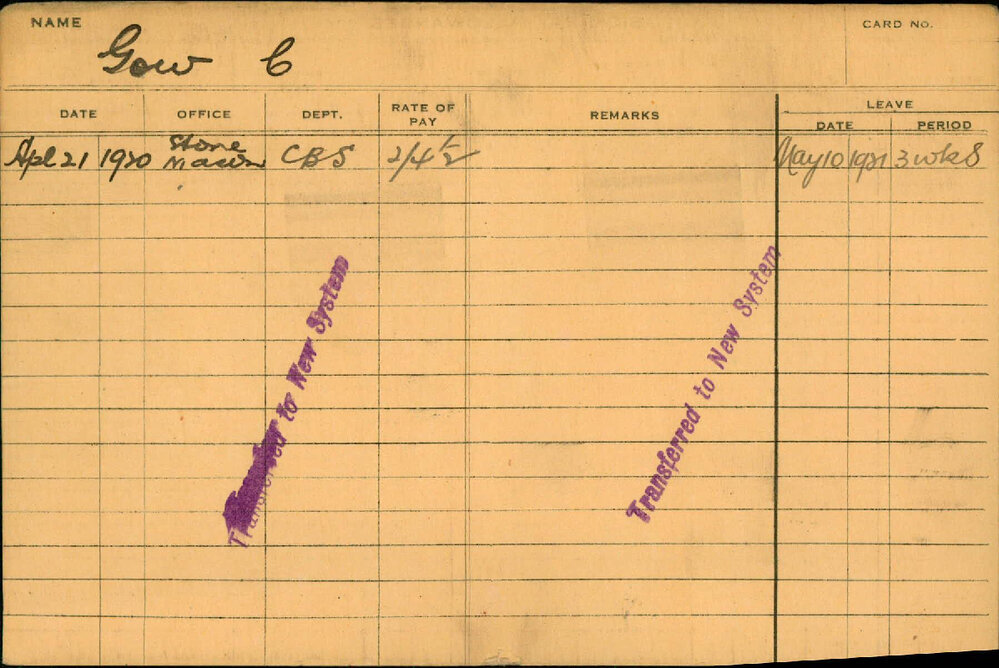 NAME
CARD No.
Gow C
DATE OFFICE DEPT. RATE OF PAY REMARKS LEAVE
DATE PERIOD
Apl 21 1920 Stone Mason CBS 2/4 1/2 May 10 1921 3 wks
Transferred to New System
Transferred to New System